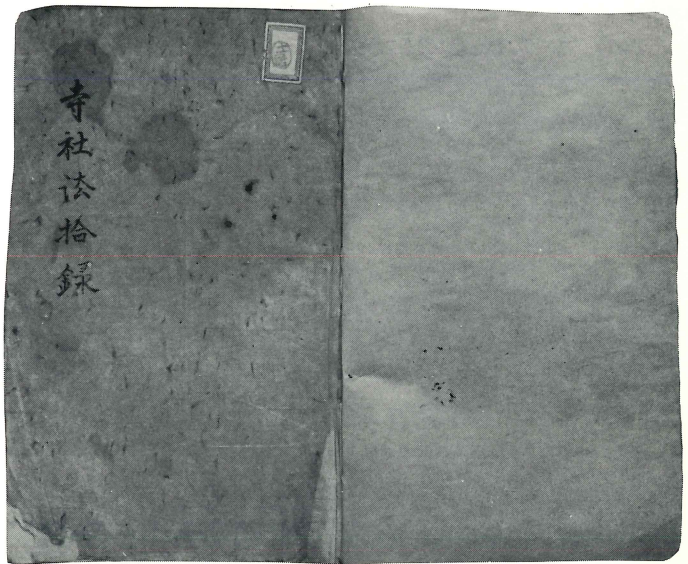 寺社法拾録